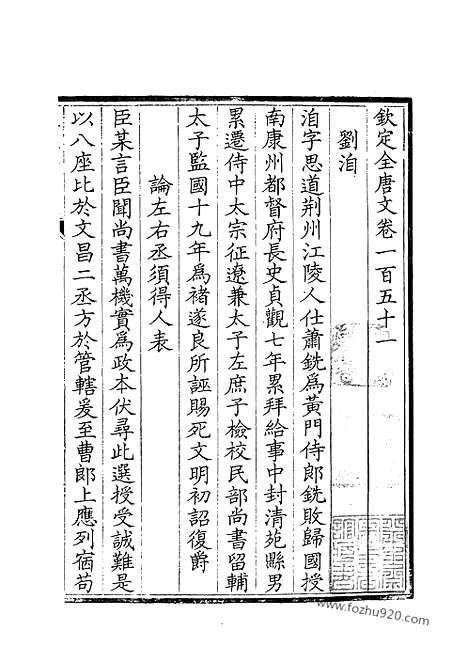 欽定全唐文卷一百五十一
劉洎
洎字思道荆州江陵人仕蕭銑爲黃門侍郎銑敗歸國授
南康州都督府長史貞觀七年累拜給事中封清苑縣男
累遷侍中太宗征遼兼太子左庶子檢校民部尚書留輔
太子監國十九年爲褚遂良所誣賜死文明初詔復爵
論左右丞須得人表
臣某言臣聞尚書萬機實爲政本伏尋此選授受誠難是
以八座比於文昌二丞方於管轄爰至曹郎上應列宿苟
www.fozhu920.com